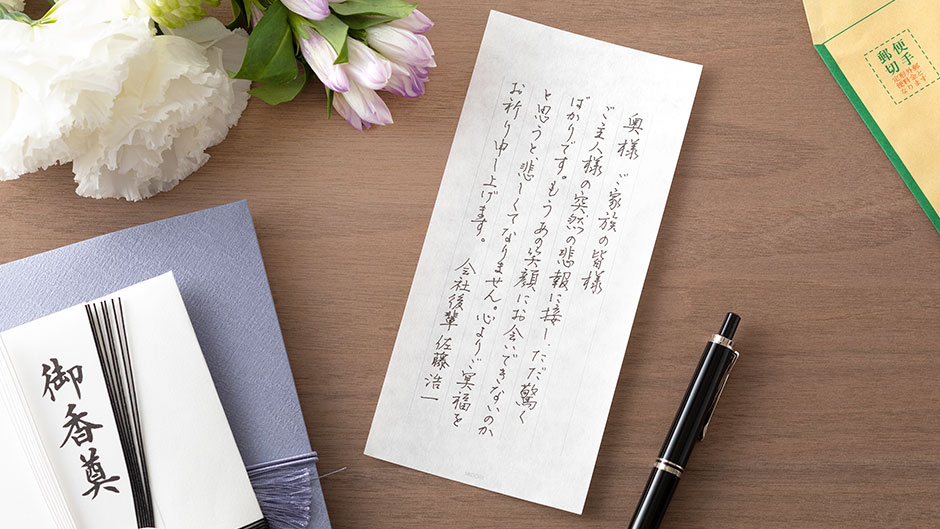 奥様 ご家族の皆様
ご主人様の突然の悲報に接し、ただ驚く
ばかりです。もうあの笑顔にお会いできないのか
と思うと、悲しくてなりません。心よりご冥福を
お祈り申し上げます。
会社後輩 佐藤浩一
御香奠
郵便
切手
定形外郵
便料金と
なります